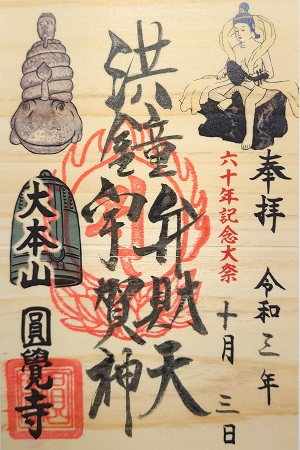 奉拝
令和三年
十月三日
六十年記念大祭
洪鐘弁財天
宇賀神
大本山
圓覺寺